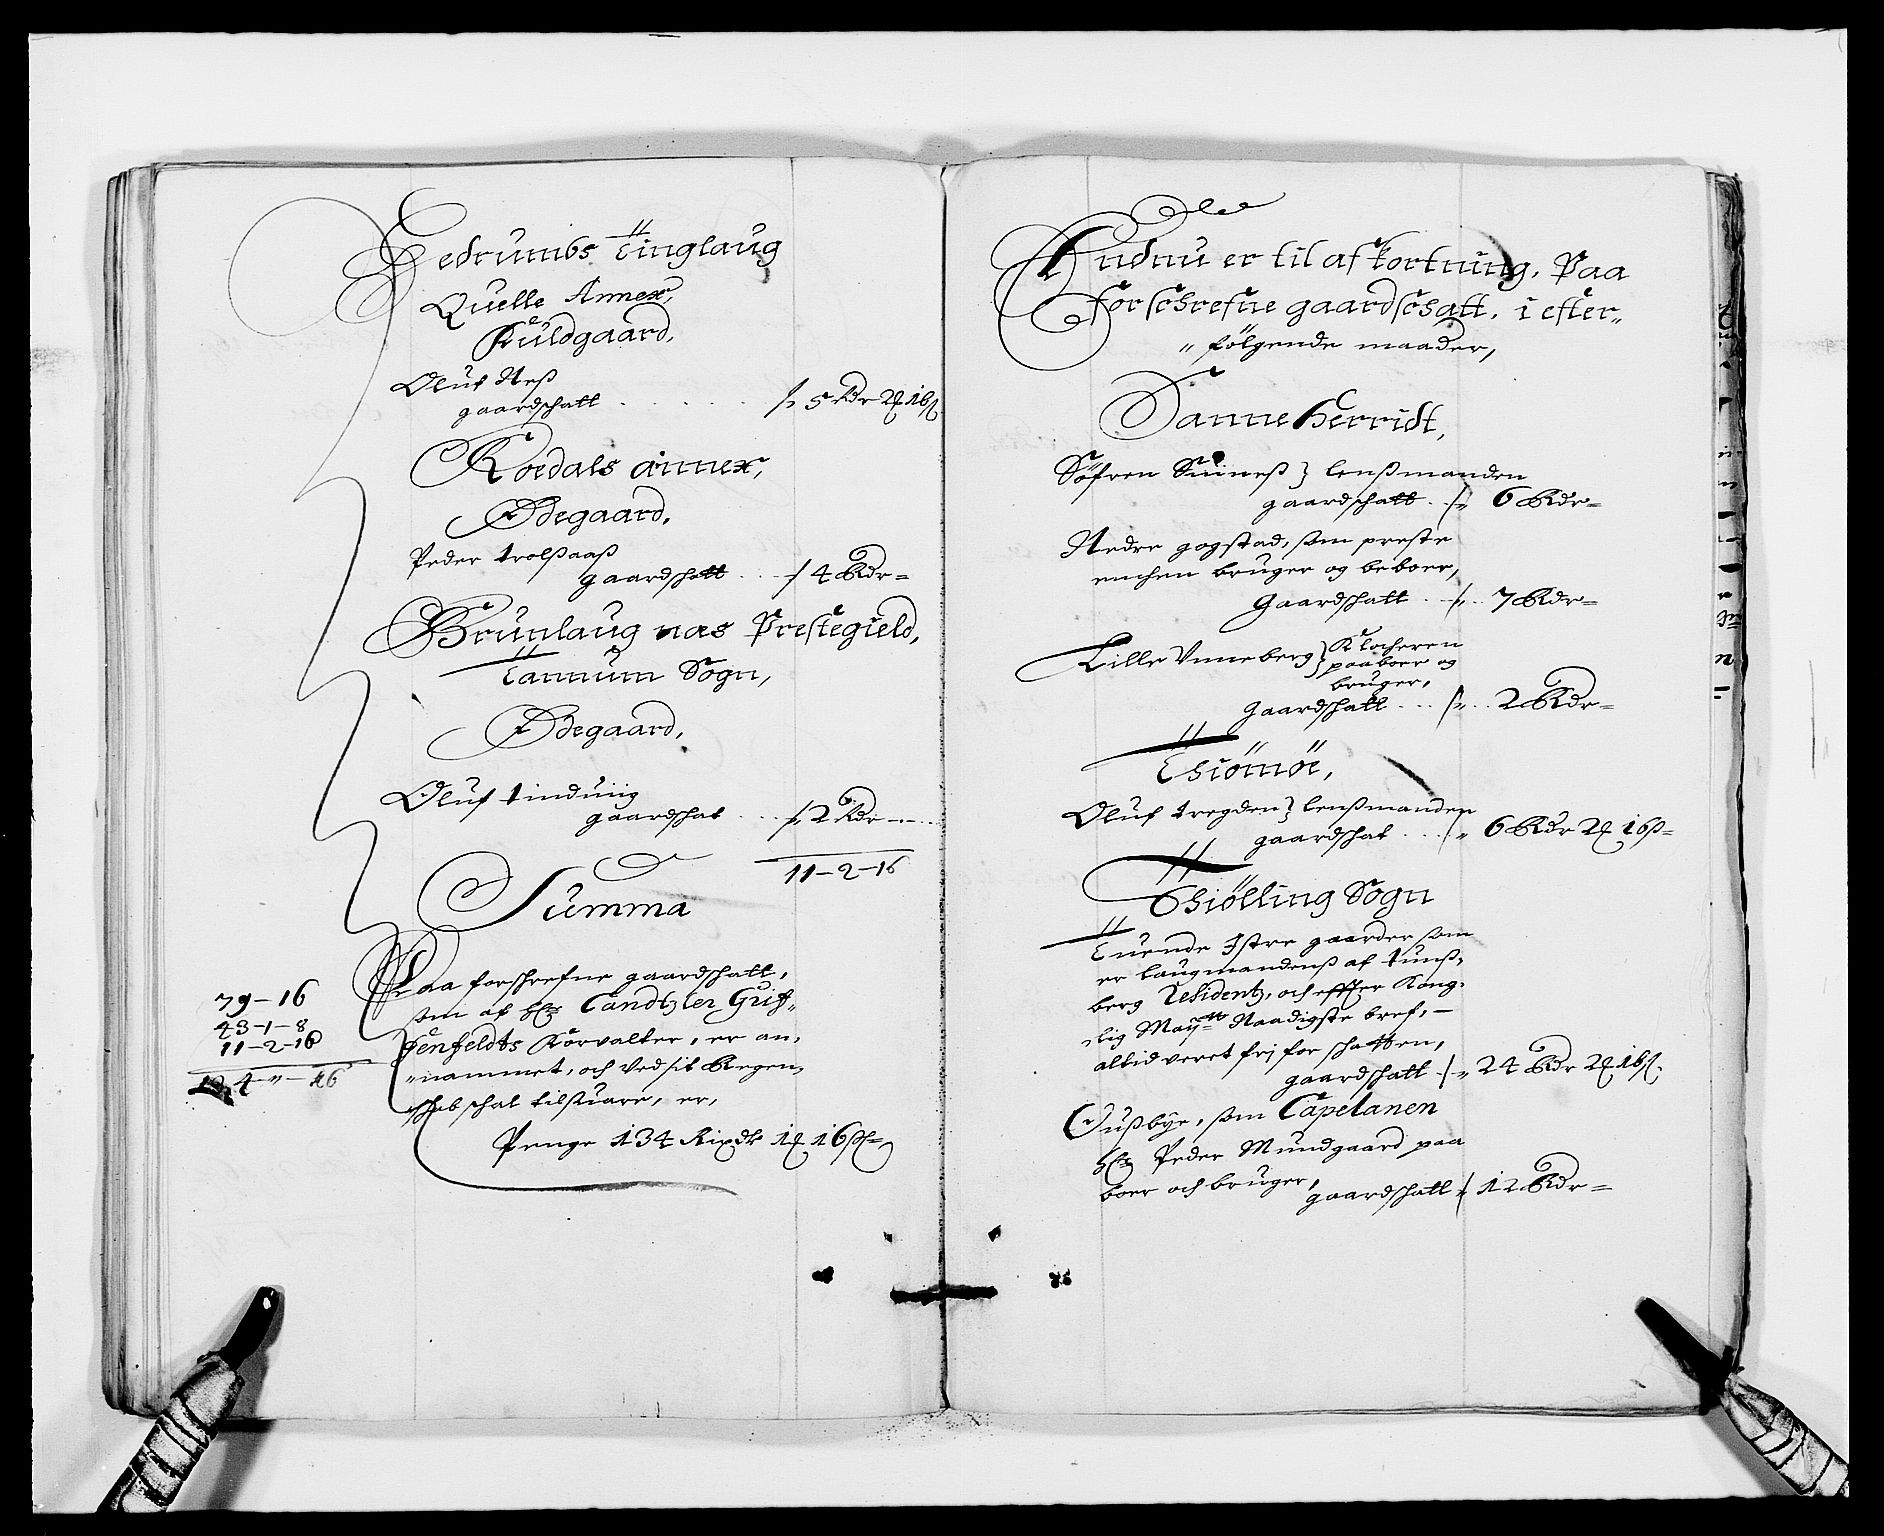 Hedrumbs Tinglaug
Quelle Annex,
Fuldgaard,
Oluf Neß
gaardschatt . . . . . 5 Rdr 2 16 ß
Roedals annex,
Ødegaard,
Peder trolßaaß
gaardschatt . . . 4 Rdr
Brunlaug næs Prestegield,
Tannum Sogn,
Ødegaard,
Oluf tindung
gaardschat . . . 2 Rdr
11-2-16
Summa
Paa forschrefne gaardschatt,
som af Hr Candtzler Griff-
genfeldts Forvalter, er an-
nammet, och ved sit Regen-
schab schal tilsuare, er,
Penge 134 Rixdr 1 16 ß
79-16
43-1-8
11-2-16
Endnu er til afkortning, Paa
forschrefne gaardschatt, i efter-
følgende maader,
Sanne Herridt,
Søfren Suineß } lenßmanden
gaardschatt . . 6 Rdr
Nedre gogstad, som preste
enchen bruger og beboer,
Gaardschatt . . 7 Rdr
Lille Unneberg } Klocheren
paaboer og
bruger,
Gaardschatt . . . 2 Rdr
Thiömöe,
Oluf tregden } lenßmanden
gaardschat . . . 6 Rdr 2 16 ß
Thiölling Sogn
Tuende Istre gaarder som
er laugmandenß af tunß-
berg Residentz, och effter Kong-
elig Maytz Naadigste bref,
altid veret frj for schatten,
gaardschatt . 24 Rdr 2 16 ß
Oußbye, som Capelanen
Hr Peder Mundgaard paa
boer och bruger,
gaardschatt 12 Rdr